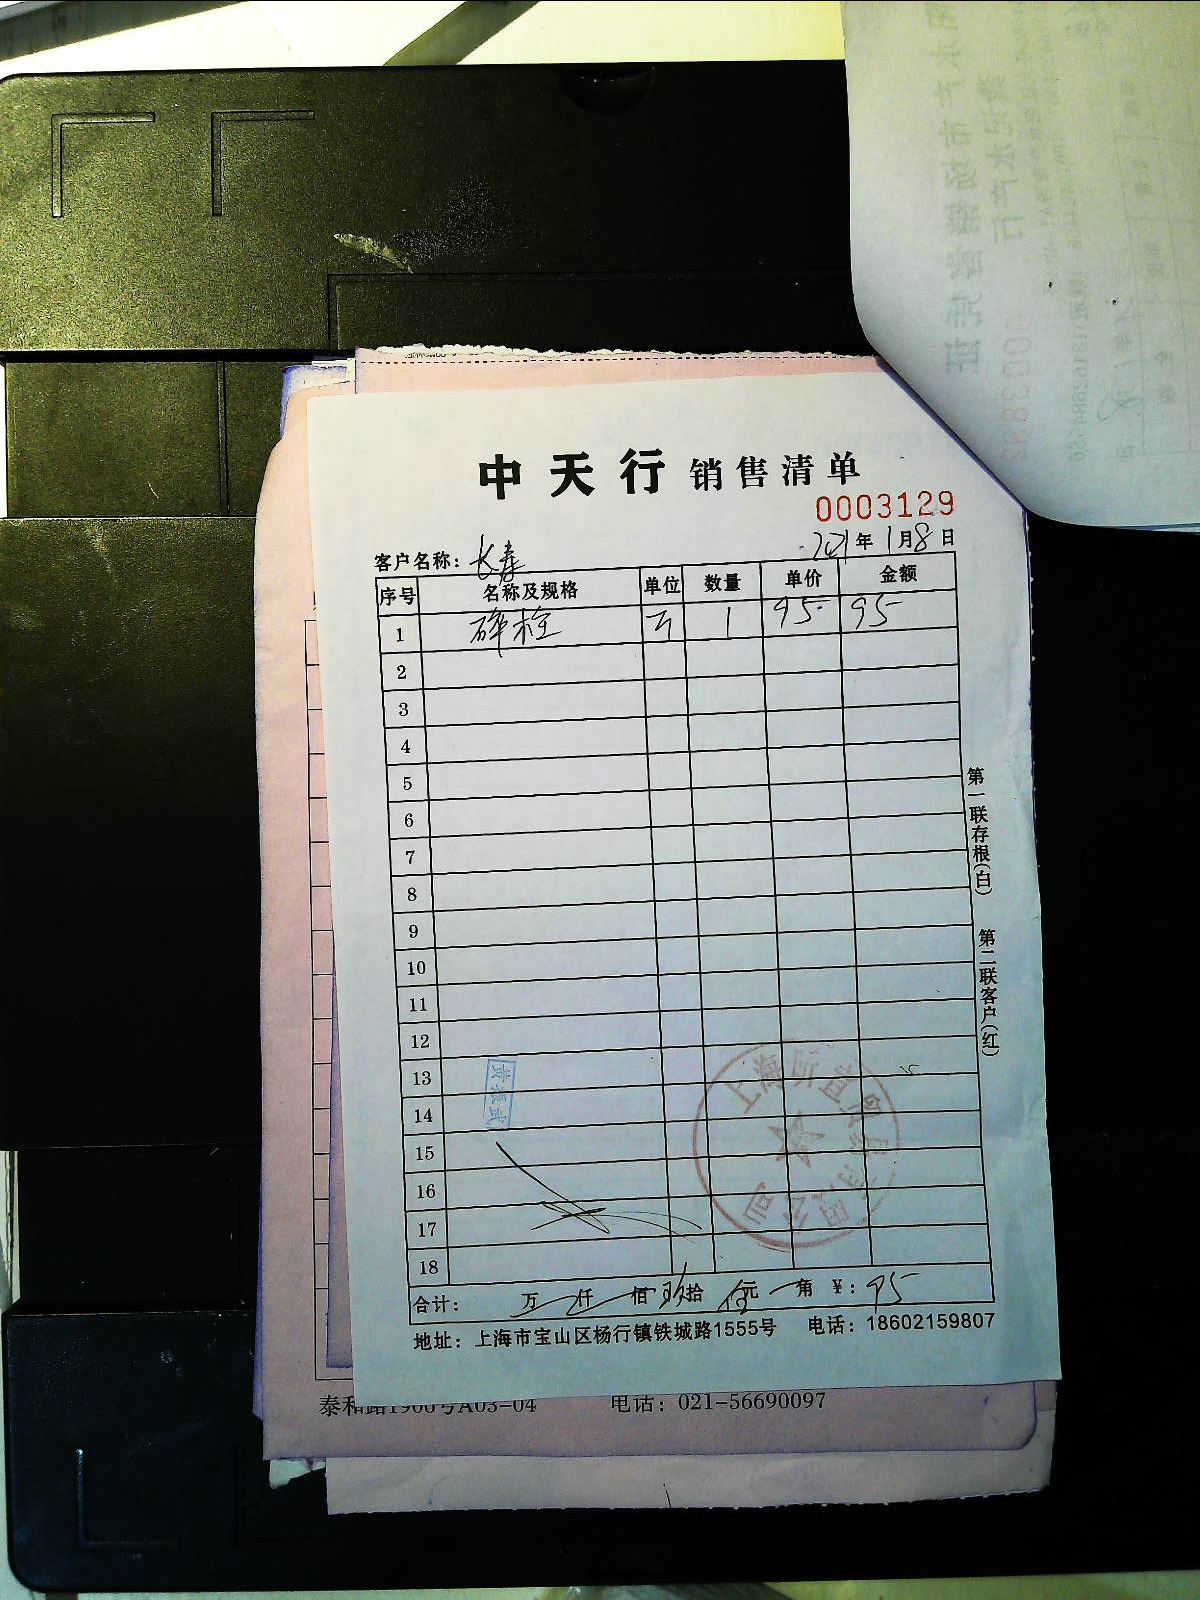 中天行 销售清单
0003129
客户名称：长寿 2021年1月8日
序号 名称及规格 单位 数量 单价 金额
1 碎栓 1 95 95
2
3
4
5
6
7
8
9
10
11
12
13
14
15
16
17
18
合计： 万 仟 佰 玖拾 伍元 角 ¥：95
地址：上海市宝山区杨行镇铁城路1555号 电话：18602159807
第一联存根(白) 第二联客户(红)
泰和路1900号A03-04 电话：021-56690097